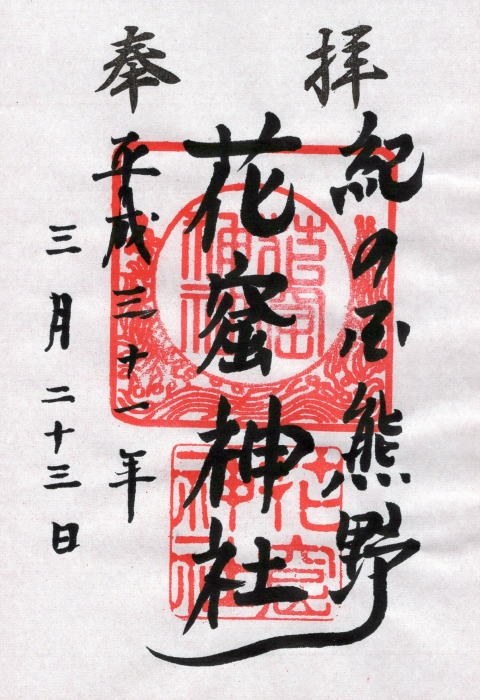 奉拝
紀の国熊野
花窟神社
平成三十一年
三月二十三日
花窟神社
花窟神社